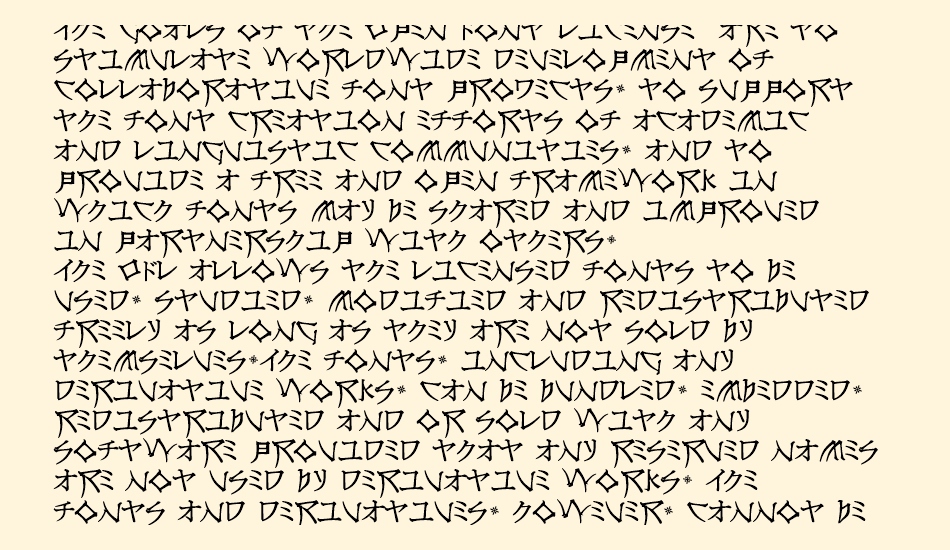 The Goals of the Open Font License are to
stimulate worldwide development of
collaborative font projects, to support
the font creation efforts of academic
and linguistic communities, and to
provide a free and open framework in
which fonts may be shared and improved
in partnership with others.
The OFL allows the licensed fonts to be
used, studied, modified and redistributed
freely as long as they are not sold by
themselves.The fonts, including any
derivative works, can be bundled, embedded,
redistributed and or sold with
software provided that any reserved names
are not used by derivative works. The
fonts and derivatives, however, cannot be